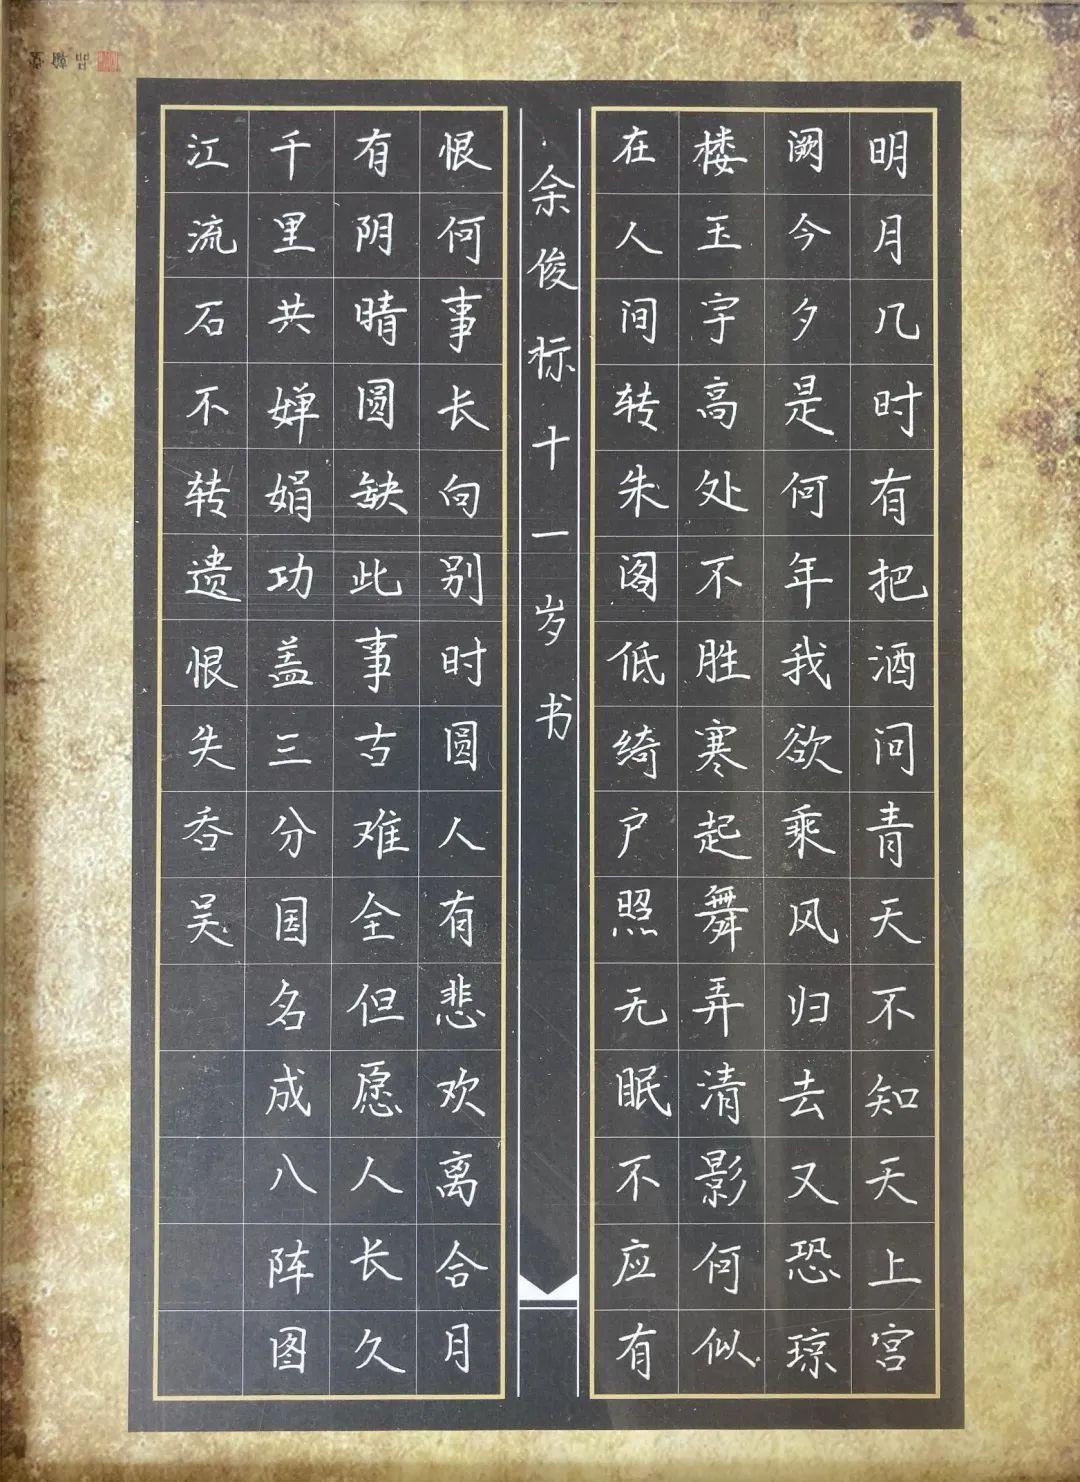 明月几时有把酒问青天不知天上宫
阙今夕是何年我欲乘风归去又恐琼
楼玉宇高处不胜寒起舞弄清影何似
在人间转朱阁低绮户照无眠不应有
余俊标十一岁书
恨何事长向别时圆人有悲欢离合月
有阴晴圆缺此事古难全但愿人长久
千里共婵娟功盖三分国名成八阵图
江流石不转遗恨失吞吴